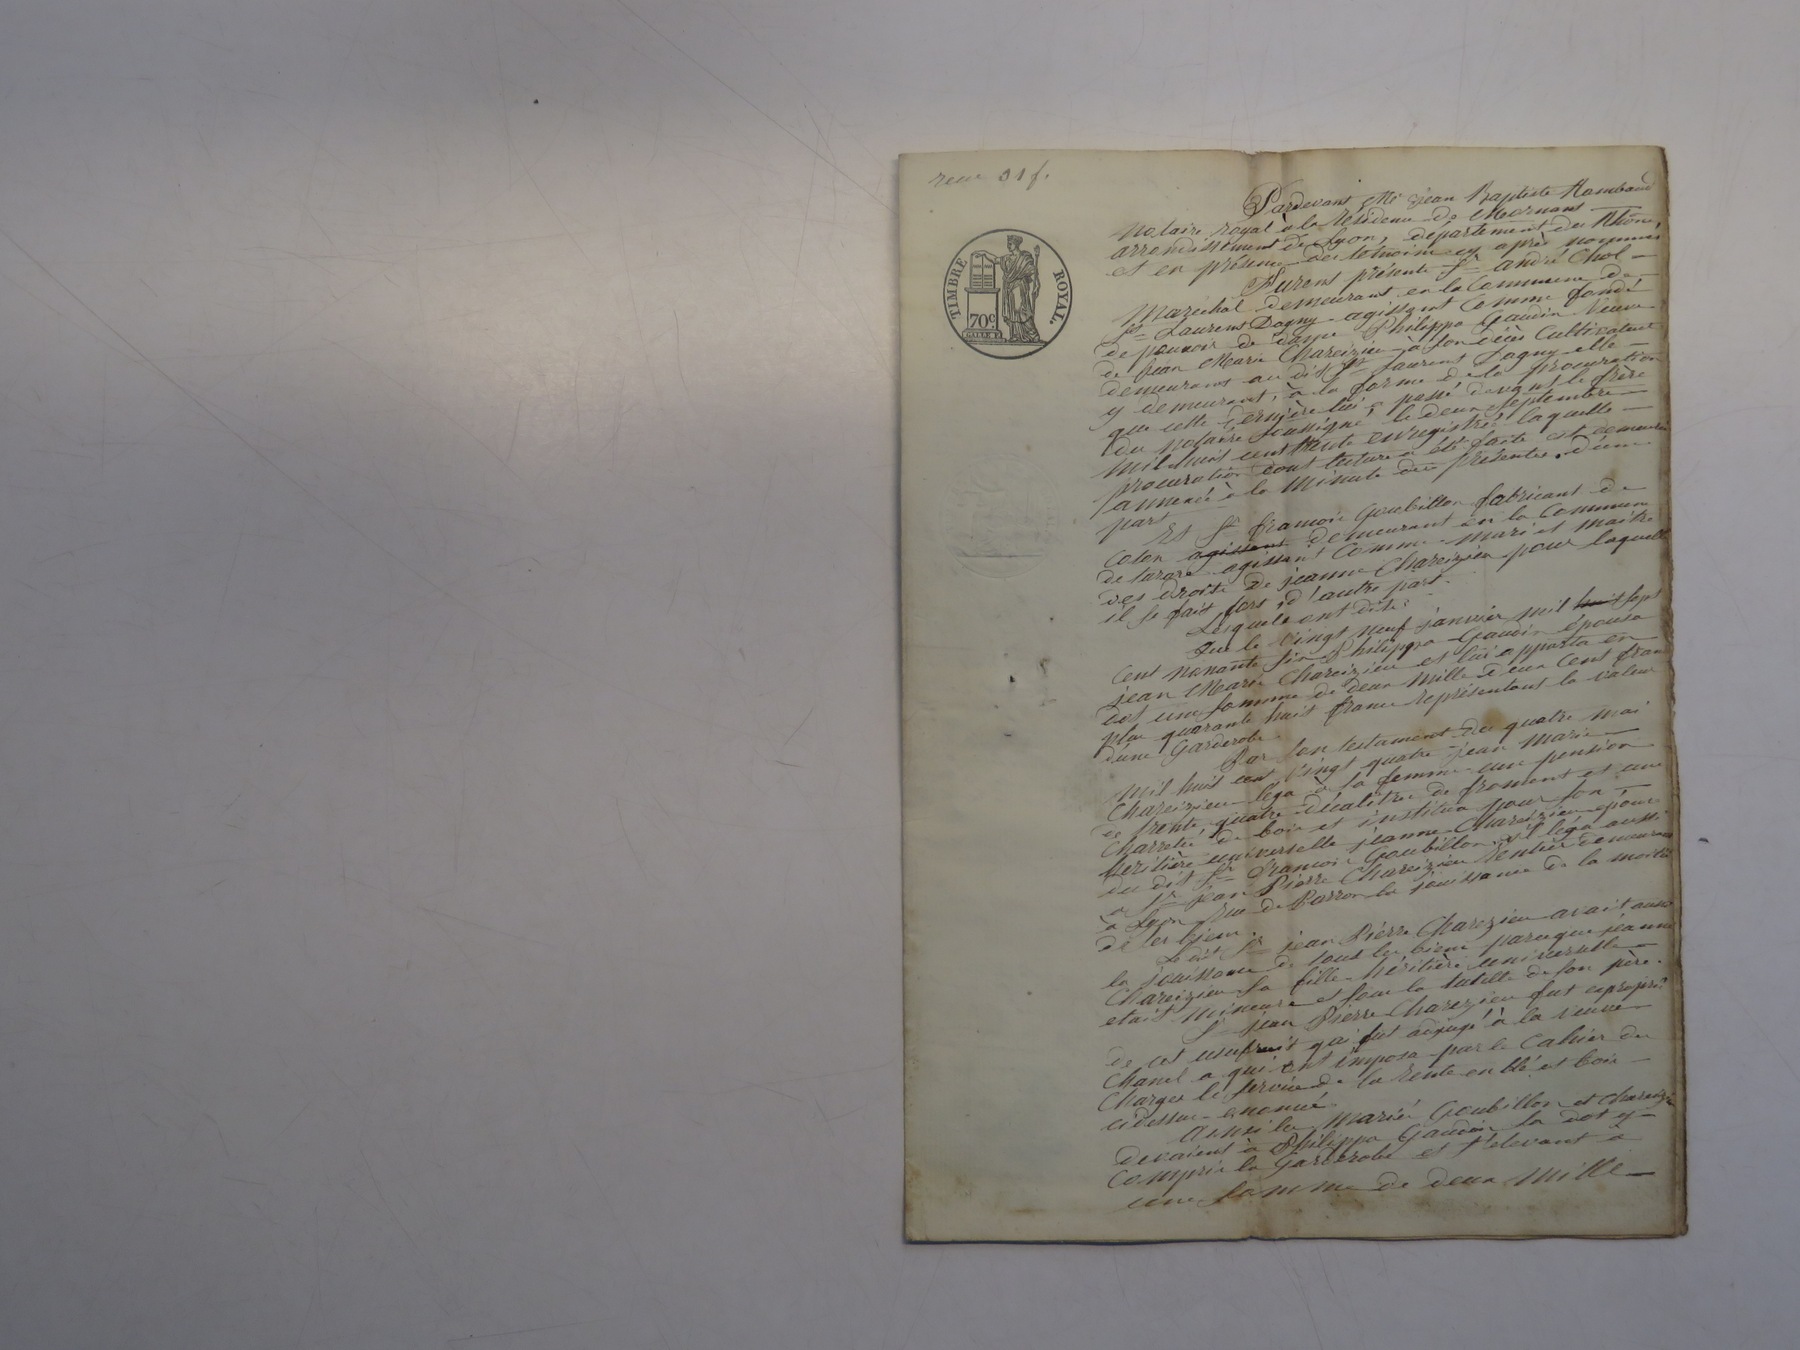 reçu 31 f.
TIMBRE ROYAL.
70c
Pardevant Me Jean Baptiste Rambaud
notaire royal à la résidence de Mornant
arrondissement de Lyon, département du Rhône,
et en présence des témoins cy après nommés
Furent présents Sr andré Chol
Maréchal demeurant en la Commune de
St Laurent Dagny agissant Comme fondé
de pouvoir de dame Philippa Gaudin Veuve
de jean Marie Chareizieu à son décès Cultivateur
demeurant au dit St Laurent Dagny elle
y demeurant, à la forme de la procuration
que cette dernière lui a passé devant le frère
du notaire soussigné, le deux septembre
mil huit cent trente enregistré laquelle
procuration dont lecture a été faite est demeurée
annexée à la Minute des présentes. d'une
part
Et Sr françois Goubillon fabricant de
coton agissant demeurant en la Commune
de tarare agissant Comme mari et maitre
des droits de jeanne Chareizieu pour laquelle
il se fait fort, d'autre part.
Lesquels ont dit:
Que le Vingt neuf janvier mil huit sept
cent nonante six Philippa Gaudin épousa
jean Marie Chareizieu et lui apporta en
dot une somme de deux mille deux cent francs
plus quarante huit francs représentant la valeur
d'une Garderobe.
Par son testament du quatre mai
mil huit cent vingt quatre jean Marie
Chareizieu légua à sa femme une pension
de trente quatre décalitres de froment et une
Charretée de bois et institua pour son
héritière universelle jeanne Chareizieu épouse
du dit Sr françois Goubillon, il légua aussi
a Sr jean Pierre Chareizieu rentier demeurant
à Lyon rue de Parron la jouissance de la moitié
de ses biens.
Le dit Sr jean Pierre Chareizieu avait aussi
la jouissance de tous les biens parceque jeanne
Chareizieu sa fille héritière universelle
etait mineure et sous la tutelle de son père.
Sr jean Pierre Chareizieu fut exproprié
de cet usufruit qui fut adjugé à la veuve
Chanel a qui on imposa par le Cahier des
Charges le service de la rente en blé et bois
cidessus énoncé.
Ainsi les mariés Goubillon et Chareizieu
devaient à Philippa Gaudin sa dot y
compris la Garderobe et s'élevant à
une somme de deux mille